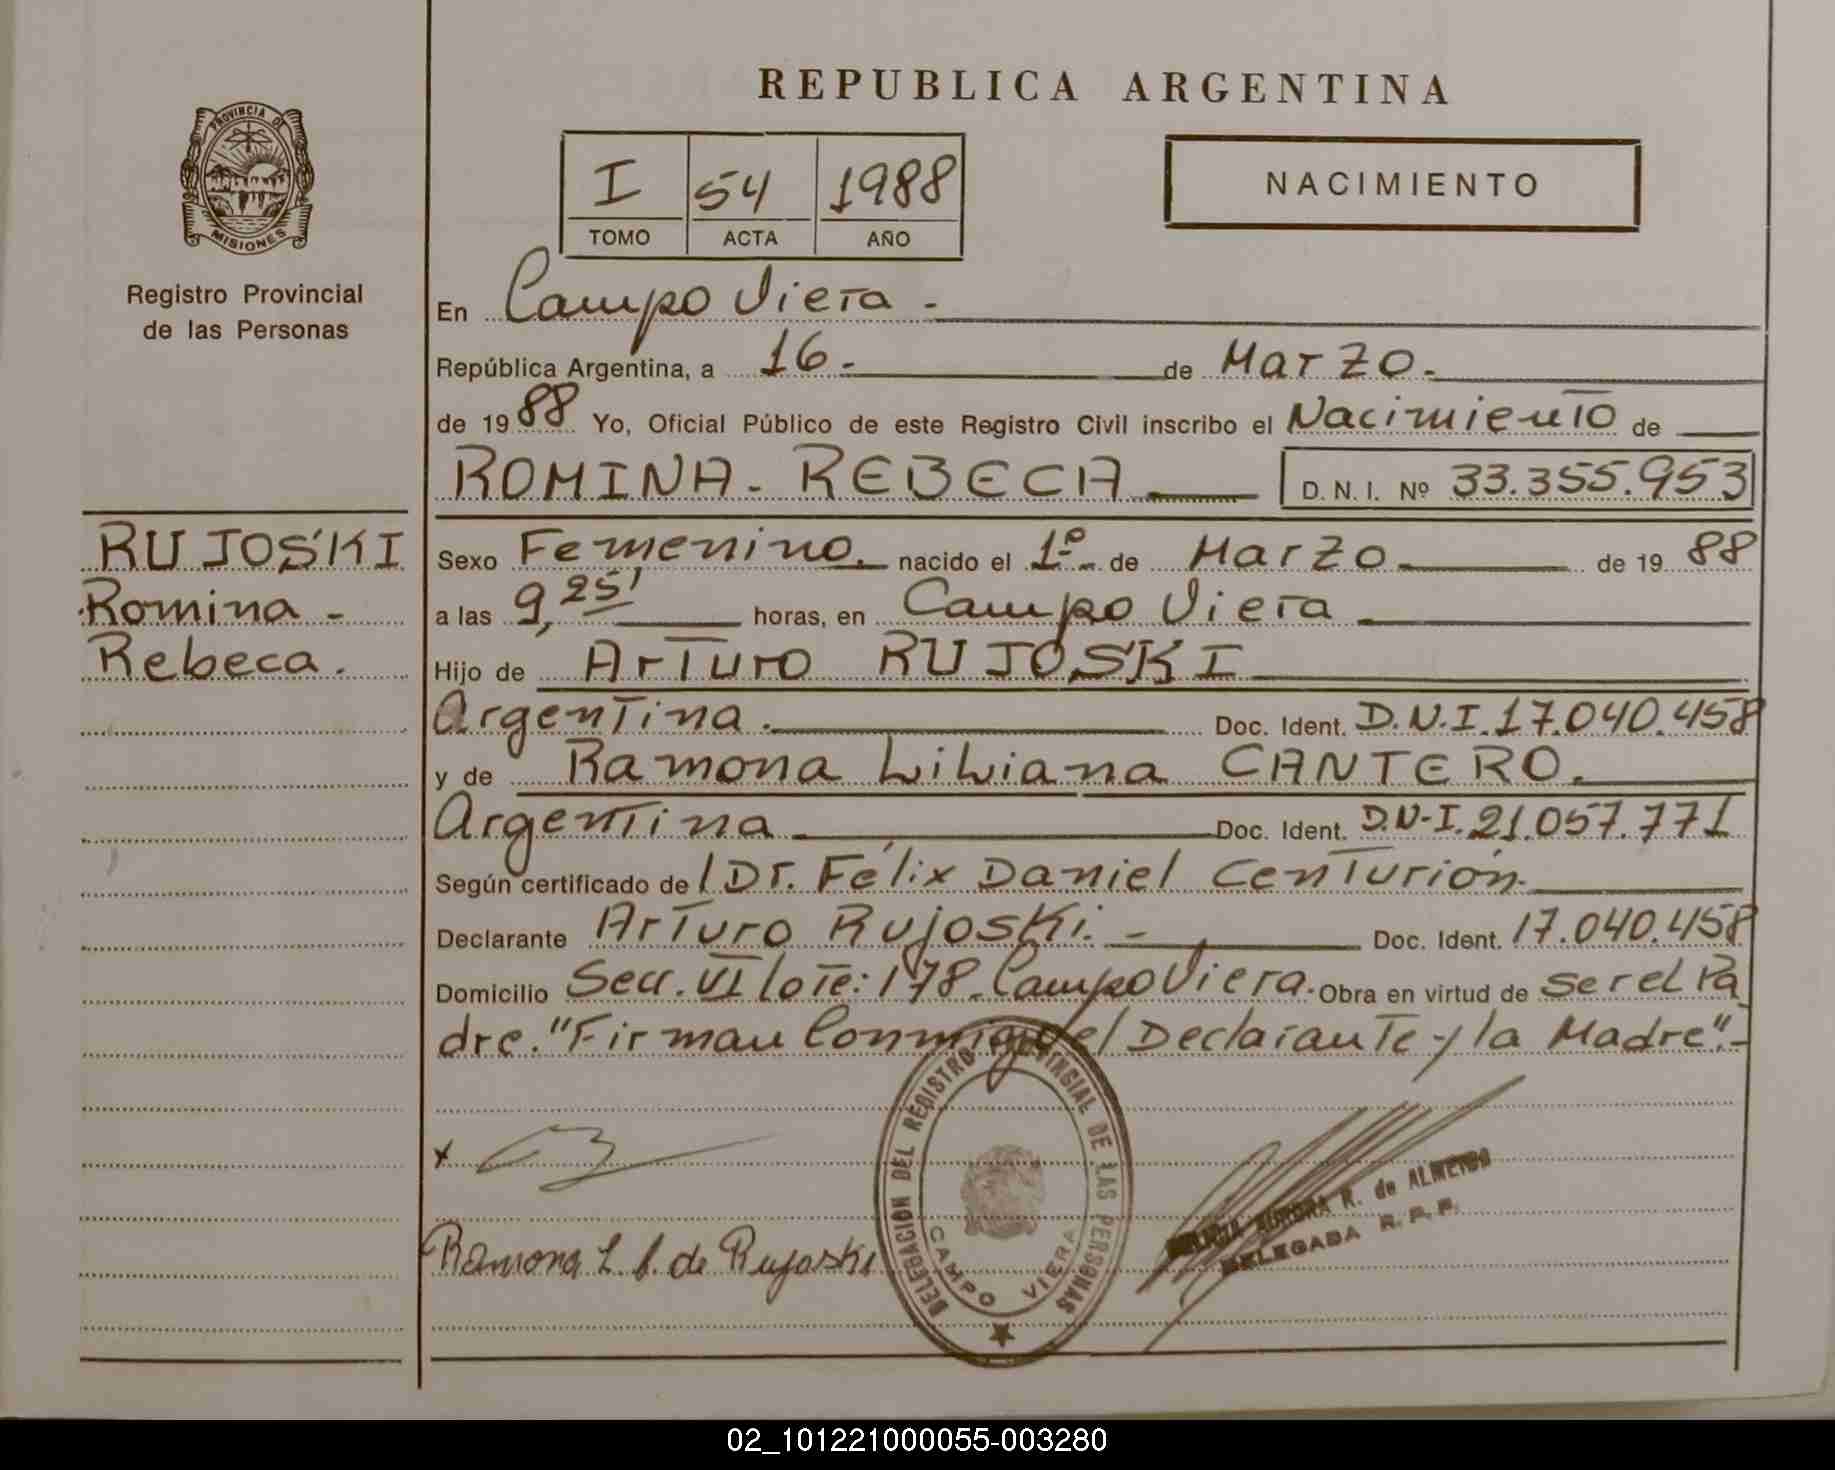 REPUBLICA ARGENTINA
PROVINCIA DE
MISIONES
Registro Provincial
de las Personas
I 54 1988
TOMO ACTA AÑO
NACIMIENTO
En Campo Viera -
República Argentina, a 16.- de Marzo.-
de 1988 Yo, Oficial Público de este Registro Civil inscribo el Nacimiento de
ROMINA - REBECA D. N. I. Nº 33.355.953
RUJOSKI
Romina -
Rebeca.
Sexo Femenino. nacido el 1º- de Marzo de 1988
a las 9,25' horas, en Campo Viera
Hijo de Arturo RUJOSKI
Argentina. Doc. Ident. D.N.I. 17.040.458
y de Ramona Liliana CANTERO.
Argentina Doc. Ident. D.N.I. 21.057.771
Según certificado de / Dr. Félix Daniel Centurión.
Declarante Arturo Rujoski. - Doc. Ident. 17.040.458
Domicilio Secc. VI lote: 178. Campo Viera. Obra en virtud de ser el Pa
dre. "Firman Conmigo el Declarante y la Madre".-
x
Ramona L. C. de Rujoski
DELEGACIÓN DEL REGISTRO PROVINCIAL DE LAS PERSONAS
CAMPO VIERA
AURORA R. de ALMEIDA
DELEGADA R. P. P.
02_101221000055-003280